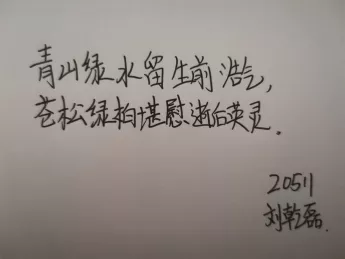 青山绿水留生前浩气，
苍松绿柏堪慰逝后英灵．
20511
刘乾磊．